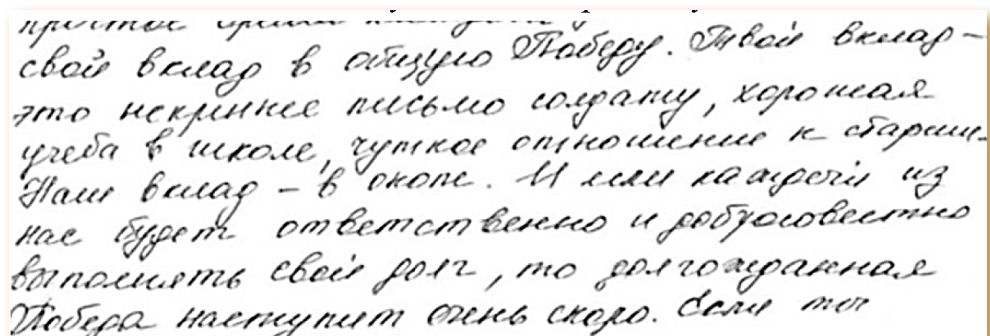 простое время каждый
свой вклад в общую Победу. Твой вклад –
это искреннее письмо солдату, хорошая
учеба в школе, чуткое отношение к старшим.
Наш вклад – в окопе. И если каждый из
нас будет ответственно и добросовестно
выполнять свой долг, то долгожданная
Победа наступит очень скоро. Если ты